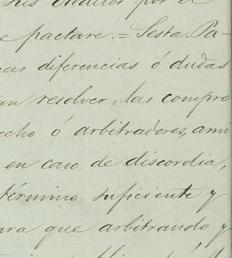 sus créditos por el
e pactare. = Sesta. Pa-
cer diferencias ó dudas
an resolver, las compro
echo ó arbitradores, ami
en caso de discordia,
término suficiente y
ara que arbitrando y